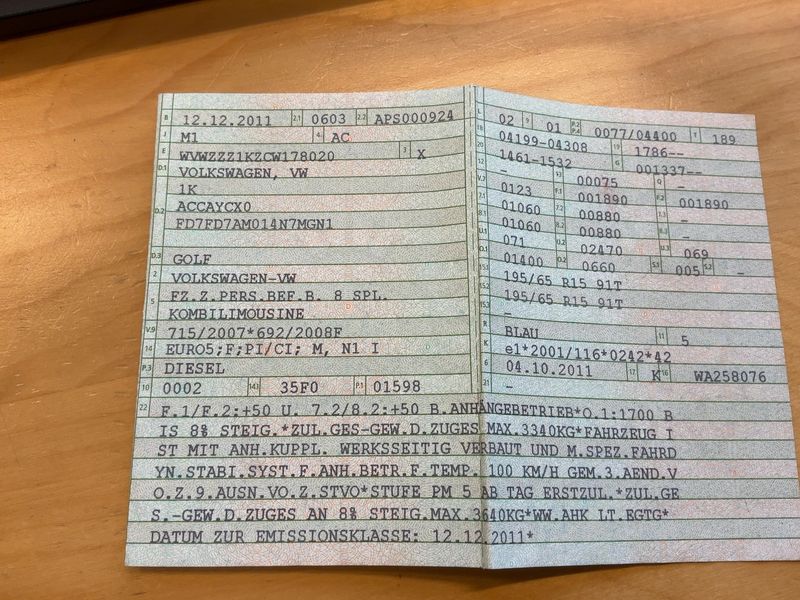 B 12.12.2011 2.1 0603 2.2 APS000924
J M1 4 AC
E WVWZZZ1KZCW178020 3 X
D.1 VOLKSWAGEN, VW
1K
D.2 ACCAYCX0
FD7FD7AM014N7MGN1
D.3 GOLF
2 VOLKSWAGEN-VW
5 FZ.Z.PERS.BEF.B. 8 SPL.
KOMBILIMOUSINE
V.9 715/2007*692/2008F
14 EURO5;F;PI/CI; M, N1 I
P.3 DIESEL
10 0002 14.1 35F0 P.1 01598
L 02 9 01 P.2 P.4 0077/04400 T 189
18 04199-04308 19 1786--
20 1461-1532 G 001337--
12 - 13 00075 Q -
V.7 0123 F.1 001890 F.2 001890
7.1 01060 7.2 00880 7.3 -
8.1 01060 8.2 00880 8.3 -
U.1 071 U.2 02470 U.3 069
O.1 01400 O.2 0660 S.1 005 S.2 -
15.1 195/65 R15 91T
15.2 195/65 R15 91T
15.3 -
R BLAU 11 5
K e1*2001/116*0242*42
6 04.10.2011 17 K 16 WA258076
21 -
22 F.1/F.2:+50 U. 7.2/8.2:+50 B.ANHÄNGEBETRIEB*O.1:1700 B
IS 8% STEIG.*ZUL.GES-GEW.D.ZUGES MAX.3340KG*FAHRZEUG I
ST MIT ANH.KUPPL. WERKSSEITIG VERBAUT UND M.SPEZ.FAHRD
YN.STABI.SYST.F.ANH.BETR.F.TEMP. 100 KM/H GEM.3.AEND.V
O.Z.9.AUSN.VO.Z.STVO*STUFE PM 5 AB TAG ERSTZUL.*ZUL.GE
S.-GEW.D.ZUGES AN 8% STEIG.MAX.3640KG*WW.AHK LT.EGTG*
DATUM ZUR EMISSIONSKLASSE: 12.12.2011*